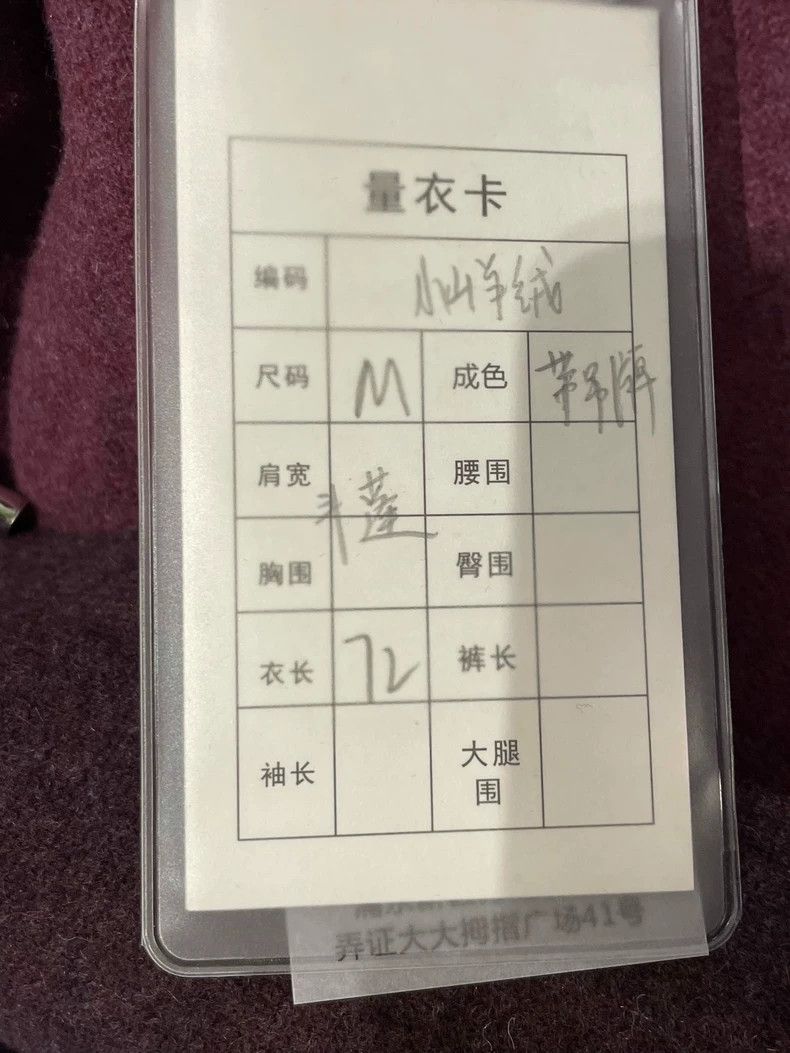 量衣卡
编码 小山羊绒
尺码 M 成色 带吊牌
肩宽 腰围
斗蓬
胸围 臀围
衣长 72 裤长
袖长 大腿围
弄证大大拇指广场41号